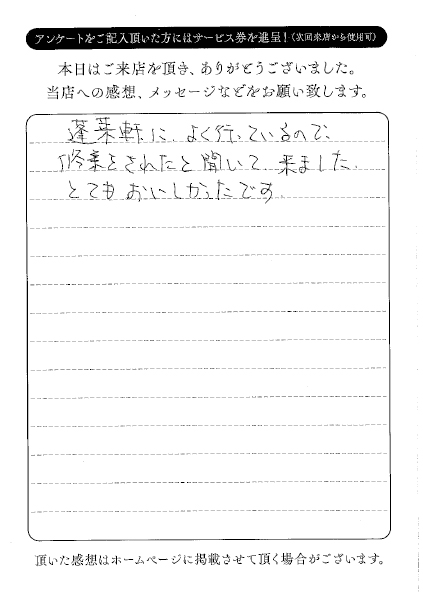 アンケートをご記入頂いた方にはサービス券を進呈！（次回来店から使用可）
本日はご来店を頂き、ありがとうございました。
当店への感想、メッセージなどをお願い致します。
蓬莱軒に、よく行っているので、
修業をされたと聞いて、来ました。
とてもおいしかったです。
頂いた感想はホームページに掲載させて頂く場合がございます。